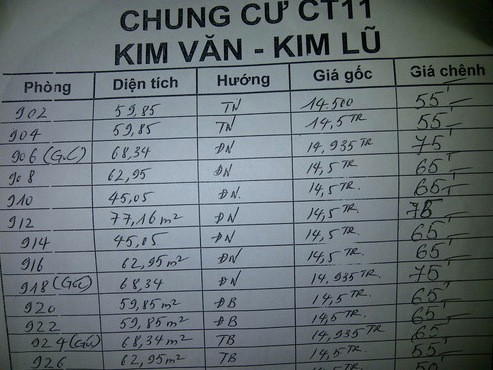 CHUNG CƯ CT11
KIM VĂN - KIM LŨ
Phòng Diện tích Hướng Giá gốc Giá chênh
902 59,85 TN 14.500 55T
904 59,85 TN 14,5 TR 55T
906 (G.C) 68,34 ĐN 14,935 TR 75T
908 62,95 ĐN 14,5 TR 65T
910 45,05 ĐN. 14,5 TR. 65T
912 77,16 m² ĐN 14,5 TR. 75T
914 45,05 ĐN 14,5 TR. 65T
916 62,95 m² ĐN 14,5 TR. 65T
918 68,34 ĐN 14,935 TR. 75T
920 59,85 m² ĐB 14,5 TR. 65T
922 59,85 m² ĐB 14,5 TR. 65T
924 68,34 m² TB 14,935 TR. 65T
926 62,95 m² TB 14,5 TR. 55T